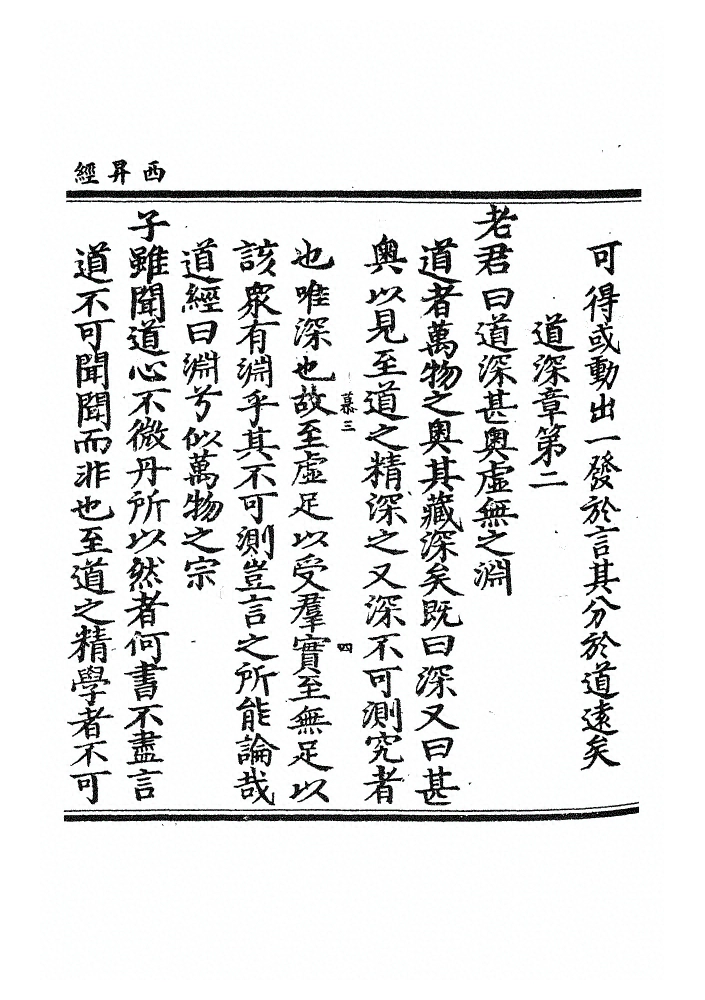 西昇經
可得或動出一發於言其分於道遠矣
道深章第二
老君曰道深甚奧虛無之淵
道者萬物之奧其藏深矣既曰深又曰甚
奧以見至道之精深之又深不可測究者
慕三
四
也唯深也故至虛足以受羣實至無足以
該衆有淵乎其不可測豈言之所能論哉
道經曰淵兮似萬物之宗
子雖聞道心不微丹所以然者何書不盡言
道不可聞聞而非也至道之精學者不可